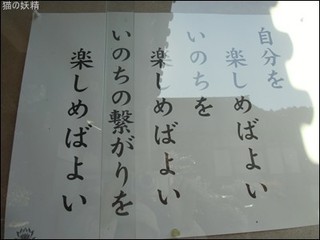 猫の妖精
自分を
楽しめばよい
いのちを
楽しめばよい
いのちの繋がりを
楽しめばよい